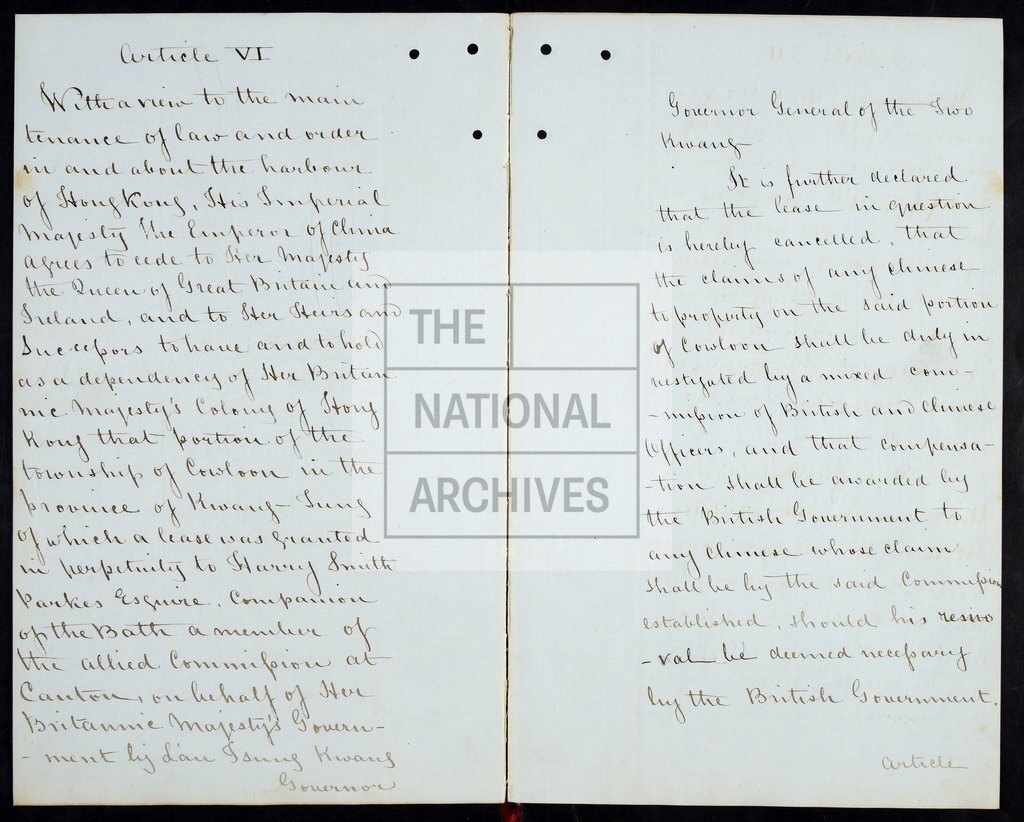 Article VI
With a view to the main
tenance of law and order
in and about the harbour
of Hong Kong, His Imperial
Majesty The Emperor of China
agrees to cede to Her Majesty
the Queen of Great Britain and
Ireland, and to Her Heirs and
Successors to have and to hold
as a dependency of Her Britan
nic Majesty's Colony of Hong
Kong that portion of the
township of Cowloon in the
province of Kwang-Tung
of which a lease was granted
in perpetuity to Harry Smith
Parkes Esquire, Companion
of the Bath a member of
the allied Commission at
Canton, on behalf of Her
Britannic Majesty's Govern-
-ment by Lau Tsung Kwang
Governor
Governor General of the Two
Kwang
It is further declared
that the lease in question
is hereby cancelled, that
the claims of any Chinese
to property on the said portion
of Cowloon shall be duly in
vestigated by a mixed com-
-mission of British and Chinese
Officers, and that compensa-
-tion shall be awarded by
the British Government to
any Chinese whose claim
shall be by the said Commission
established, should his remo
-val be deemed necessary
by the British Government.
Article
THE
NATIONAL
ARCHIVES